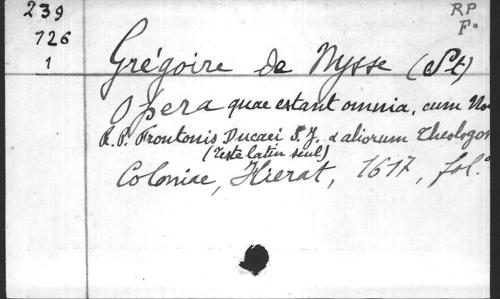 239
726
1
RP
F.
Grégoire de Nysse (St)
Opera quae extant omnia, cum No
R. P. Frontonis Ducaei S.J. & aliorum Theologor
(Texte latin seul)
Coloniae, Hierat, 1617, fol.°